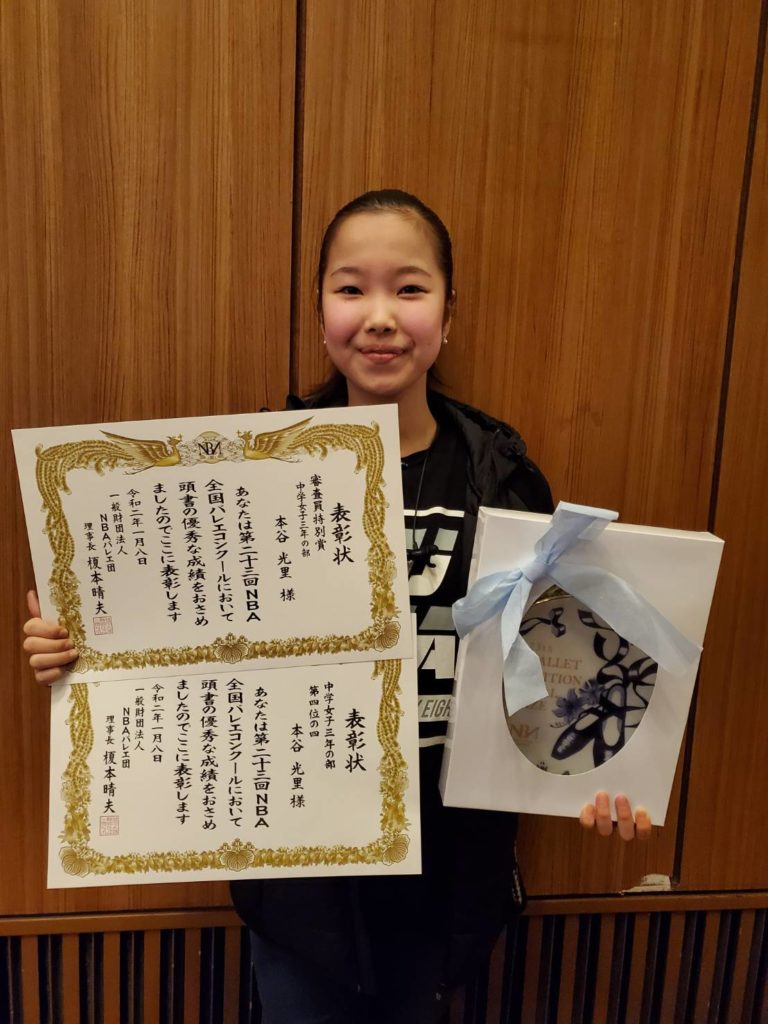 NBA
表彰状
審査員特別賞
中学女子三年の部
本谷 光里 様
あなたは第二十三回NBA
全国バレエコンクールにおいて
頭書の優秀な成績をおさめ
ましたのでここに表彰します
令和二年一月八日
一般財団法人
NBAバレエ団
理事長 榎本晴夫
表彰状
中学女子三年の部
第四位の四
本谷 光里 様
あなたは第二十三回NBA
全国バレエコンクールにおいて
頭書の優秀な成績をおさめ
ましたのでここに表彰します
令和二年一月八日
一般財団法人
NBAバレエ団
理事長 榎本晴夫